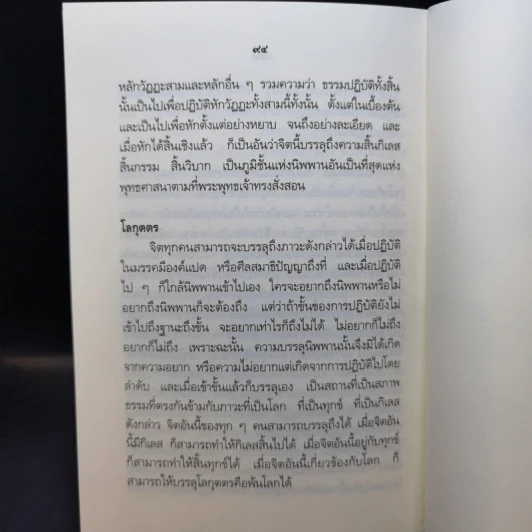 ๙๔
หลักวัฏฏะสามและหลักอื่น ๆ รวมความว่า ธรรมปฏิบัติทั้งสิ้น
นั้นเป็นไปเพื่อปฏิบัติหักวัฏฏะทั้งสามนี้ทั้งนั้น ตั้งแต่ในเบื้องต้น
และเป็นไปเพื่อหักตั้งแต่อย่างหยาบ จนถึงอย่างละเอียด และ
เมื่อหักได้สิ้นเชิงแล้ว ก็เป็นอันว่าจิตนี้บรรลุถึงความสิ้นกิเลส
สิ้นกรรม สิ้นวิบาก เป็นภูมิชั้นแห่งนิพพานอันเป็นที่สุดแห่ง
พุทธศาสนาตามที่พระพุทธเจ้าทรงสั่งสอน
โลกุตตร
จิตทุกคนสามารถจะบรรลุถึงภาวะดังกล่าวได้เมื่อปฏิบัติ
ในมรรคมีองค์แปด หรือศีลสมาธิปัญญาถึงที่ และเมื่อปฏิบัติ
ไป ๆ ก็ใกล้นิพพานเข้าไปเอง ใครจะอยากถึงนิพพานหรือไม่
อยากถึงนิพพานก็จะต้องถึง แต่ว่าถ้าขั้นของการปฏิบัติยังไม่
เข้าไปถึงฐานะถึงขั้น จะอยากเท่าไรก็ถึงไม่ได้ ไม่อยากก็ไม่ถึง
อยากก็ไม่ถึง เพราะฉะนั้น ความบรรลุนิพพานนั้นจึงมิได้เกิด
จากความอยาก หรือความไม่อยากแต่เกิดจากการปฏิบัติไปโดย
ลำดับ และเมื่อเข้าขั้นแล้วก็บรรลุเอง เป็นสถานที่เป็นสภาพ
ธรรมที่ตรงกันข้ามกับภาวะที่เป็นโลก ที่เป็นทุกข์ ที่เป็นกิเลส
ดังกล่าว จิตอันนี้ของทุก ๆ คนสามารถบรรลุถึงได้ เมื่อจิตอัน
นี้มีกิเลส ก็สามารถทำให้กิเลสสิ้นไปได้ เมื่อจิตอันนี้อยู่กับทุกข์
ก็สามารถทำให้สิ้นทุกข์ได้ เมื่อจิตอันนี้เกี่ยวข้องกับโลก ก็
สามารถให้บรรลุโลกุตตรคือพ้นโลกได้